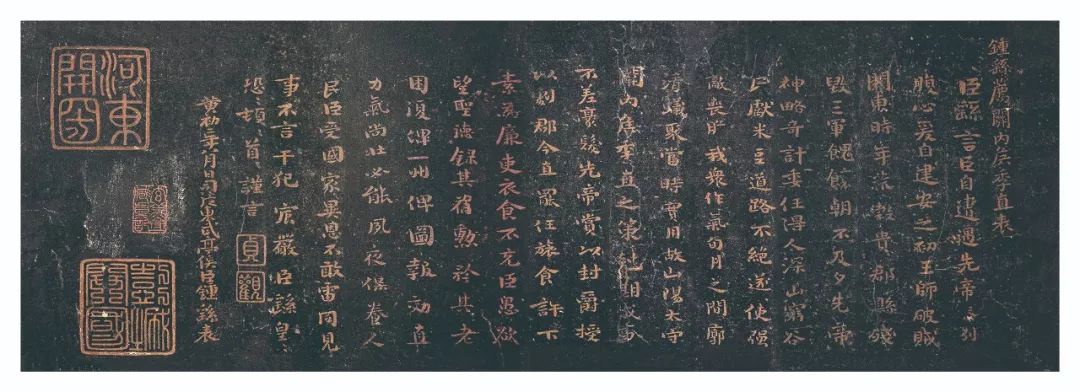 鍾繇薦關內侯季直表
臣繇言臣自遭遇先帝忝列
腹心爰自建安之初王師破賊
關東時年荒穀貴郡縣殘
毀三軍餽饟朝不及夕先帝
神略奇計委任得人深山窮谷
民獻米豆道路不絕遂使强
敵喪膽我衆作氣旬月之間廓
清蟻聚當時實用故山陽太守
關內侯季直之策剋期成事
不差豪髮先帝賞以封爵授
以劇郡今直罷任旅食許下
素為廉吏衣食不充臣愚欲
望聖德錄其舊勳矜其老
困復俾一州俾圖報効直
力氣尚壯必能夙夜保養人
民臣受國家異恩不敢雷同見
事不言干犯宸嚴臣繇皇
恐〻頓〻首謹言
貞觀
黃初二年月日司徒東武亭侯臣鍾繇表
河東